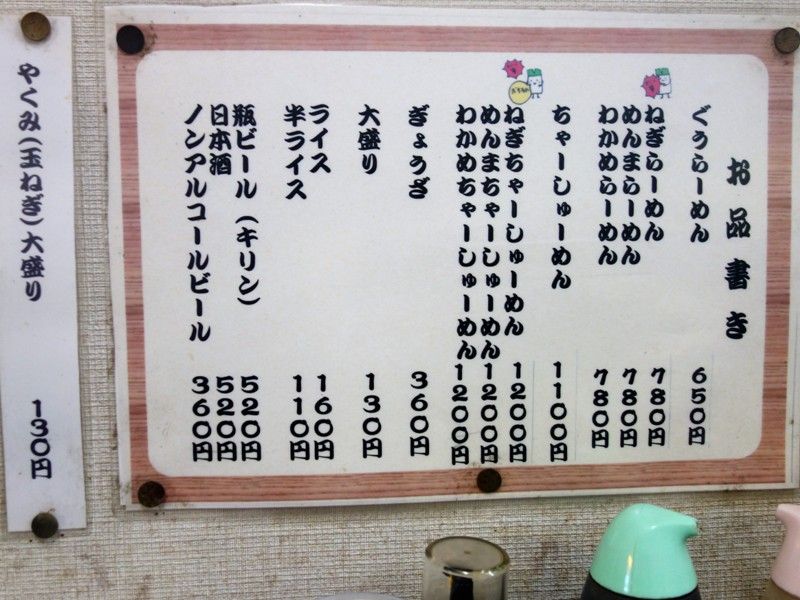 お品書き
ぐうらーめん 650円
ねぎらーめん 780円
めんまらーめん 780円
わかめらーめん 780円
ちゃーしゅーめん 1100円
ねぎちゃーしゅーめん 1200円
めんまちゃーしゅーめん 1200円
わかめちゃーしゅーめん 1200円
ぎょうざ 360円
大盛り 130円
ライス 160円
半ライス 110円
瓶ビール (キリン) 520円
日本酒 520円
ノンアルコールビール 360円
やくみ(玉ねぎ)大盛り 130円